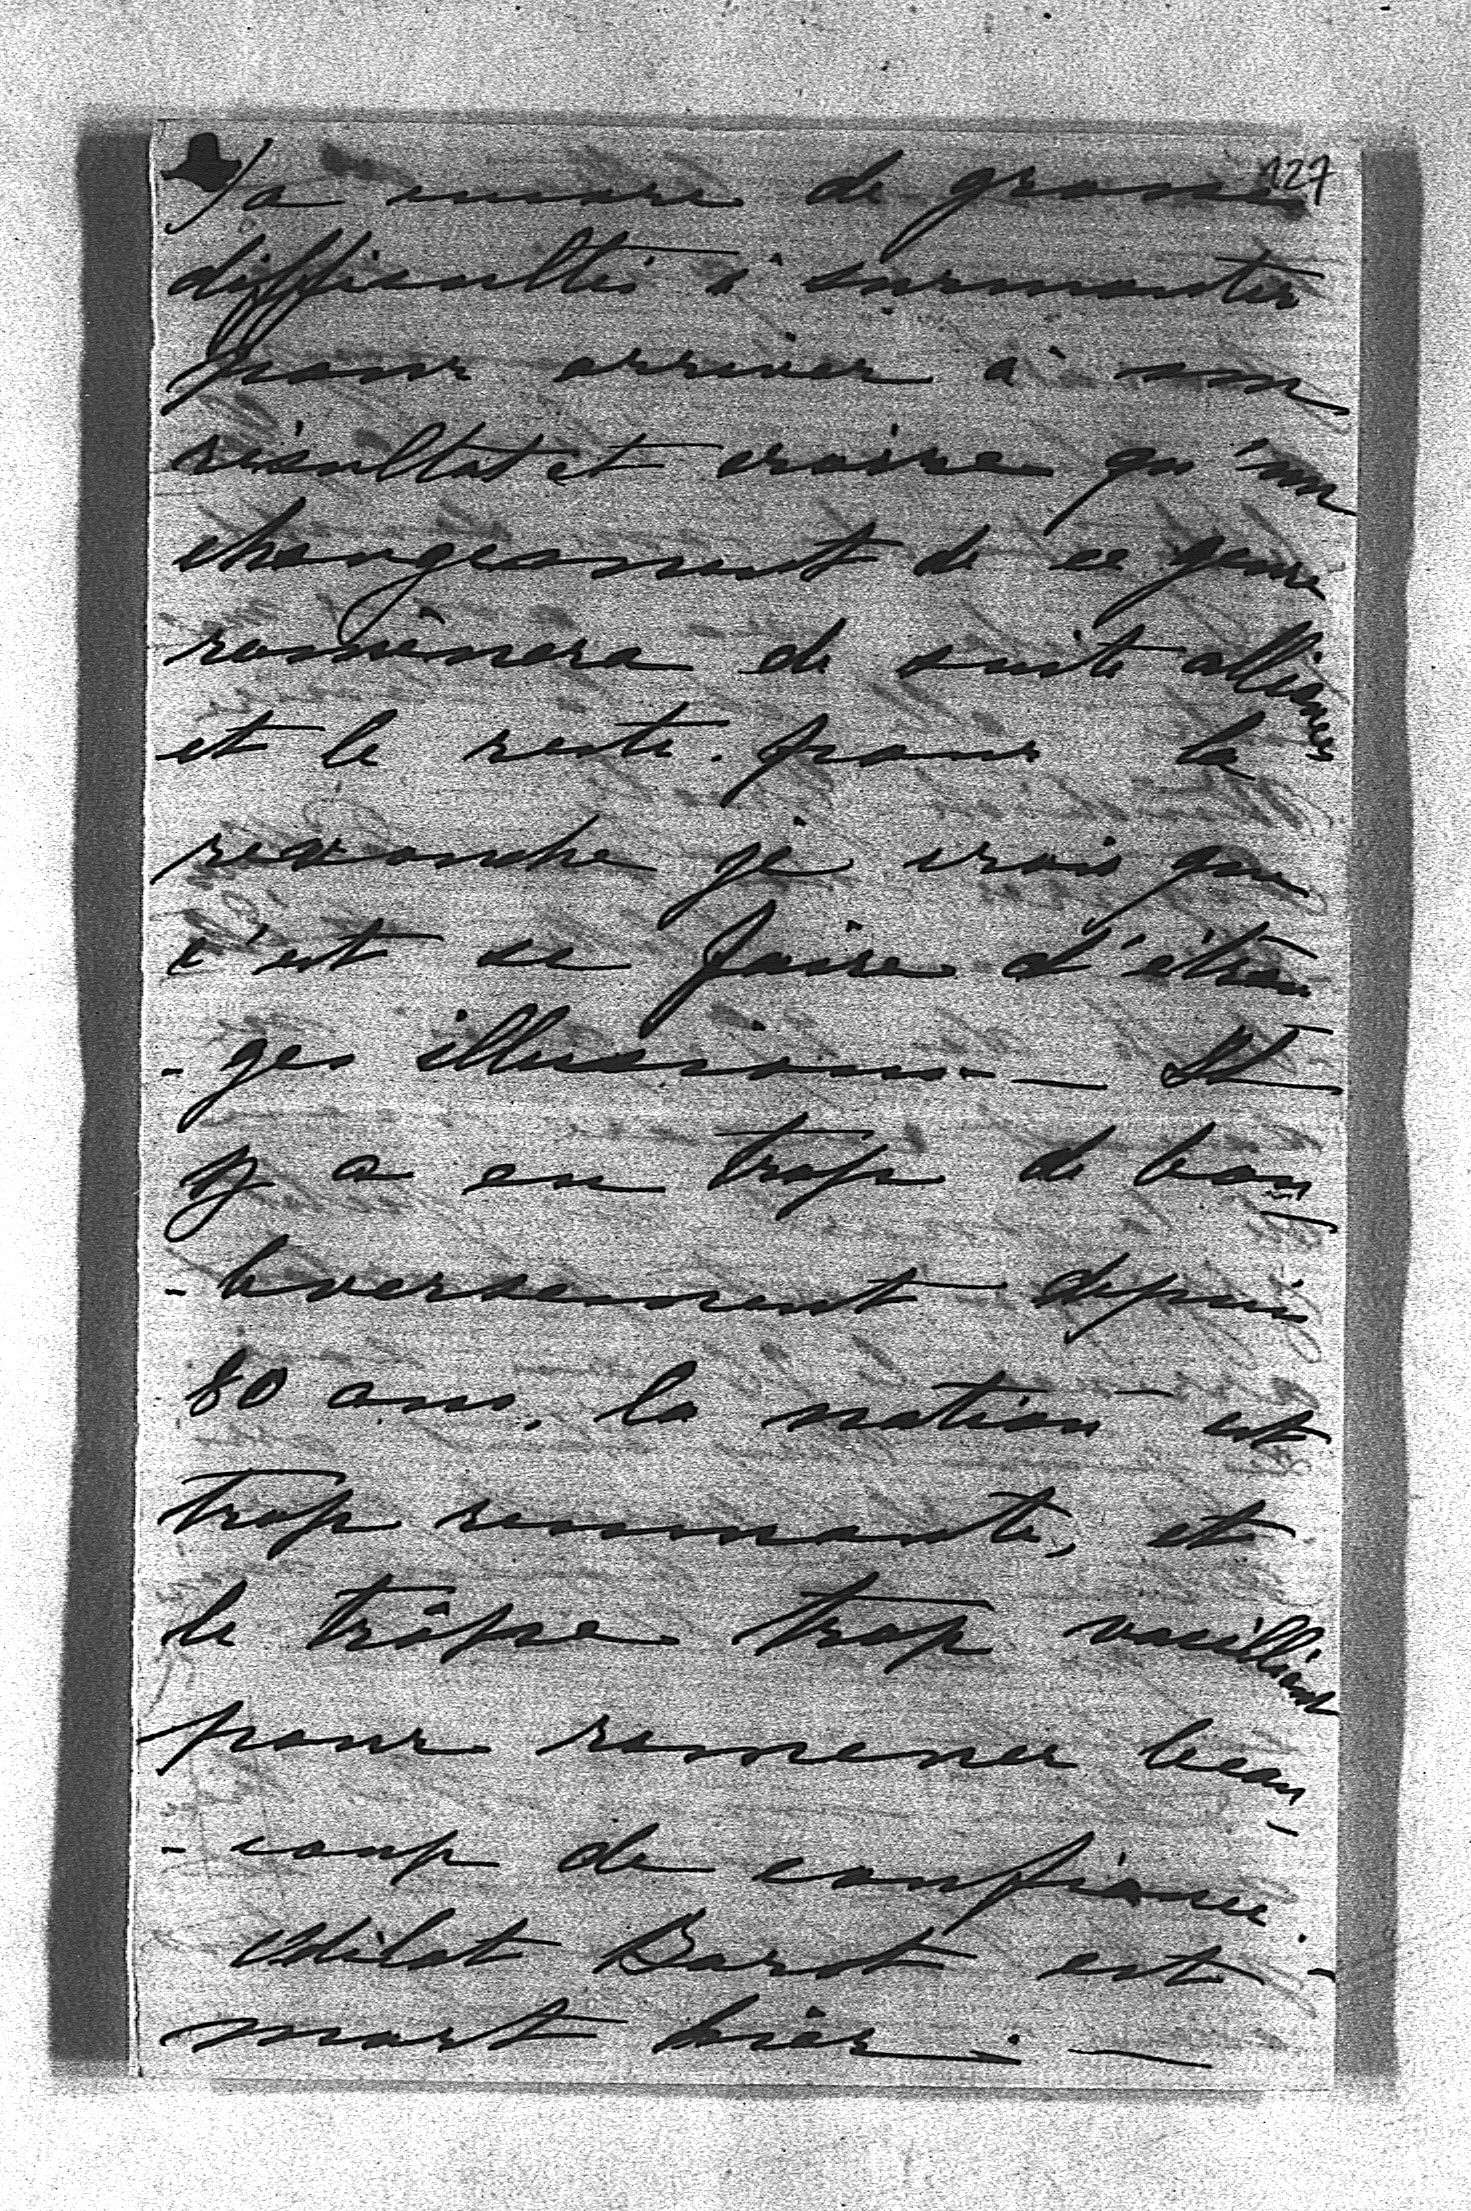 127
y a encore de grosses
difficultés à surmonter
pour arriver à un
résultat et croire qu'un
changement de ce genre
ramènera de suite alliances
et le reste. pour la
revanche je crois que
c'est se faire d'étran
- ges illusions. — Il
y a eu trop de bou-
- leversement depuis
80 ans, la nation est
trop remuante, et
le trône trop vacilliant
pour ramener beau-
- coup de confiance.
Odilot Barot est -
mort hier. —